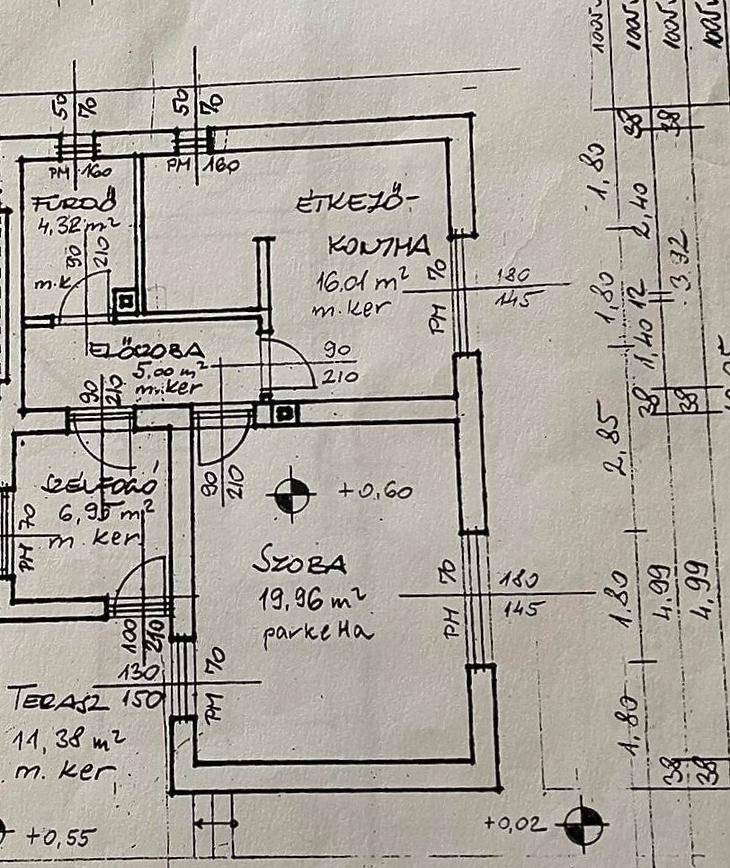 50 70
50 70
PM 160
PM 160
FÜRDŐ
4,32 m²
90
210
m.k
ÉTKEZŐ-
KONYHA
16.01 m²
m.ker
PM 70
180
145
ELŐSZOBA
5,00 m²
m.ker
90
210
90
210
90
210
SZÉLFOGÓ
6,95 m²
m. ker
PM 70
+0,60
SZOBA
19,96 m²
parketta
PM 70
180
145
100
210
130
150
PM 70
TERASZ
11,38 m²
m. ker
+0,55
+0,02
38
38
1,80
2,40
3.92
1,80
12
1,40
38
38
2,85
1,80
4,99
4,99
1,80
38
38